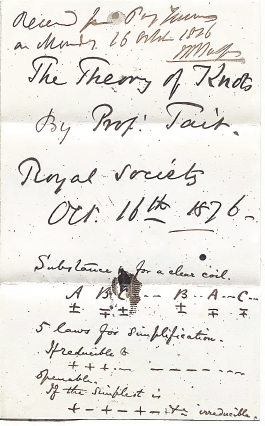 Received from
on Monday 16 Octr 1876
The Theory of Knots
By Prof. Tait.
Royal Society
Oct 16th 1876-
Substance for a clear coil.
A B C -- B - A - C -
± ∓ ± ± ∓ ∓
5 laws for simplification.
If reducible &
+ + + - - - - - - - -
openable.
If the simplest is
+ - + - + - it is irreducible.